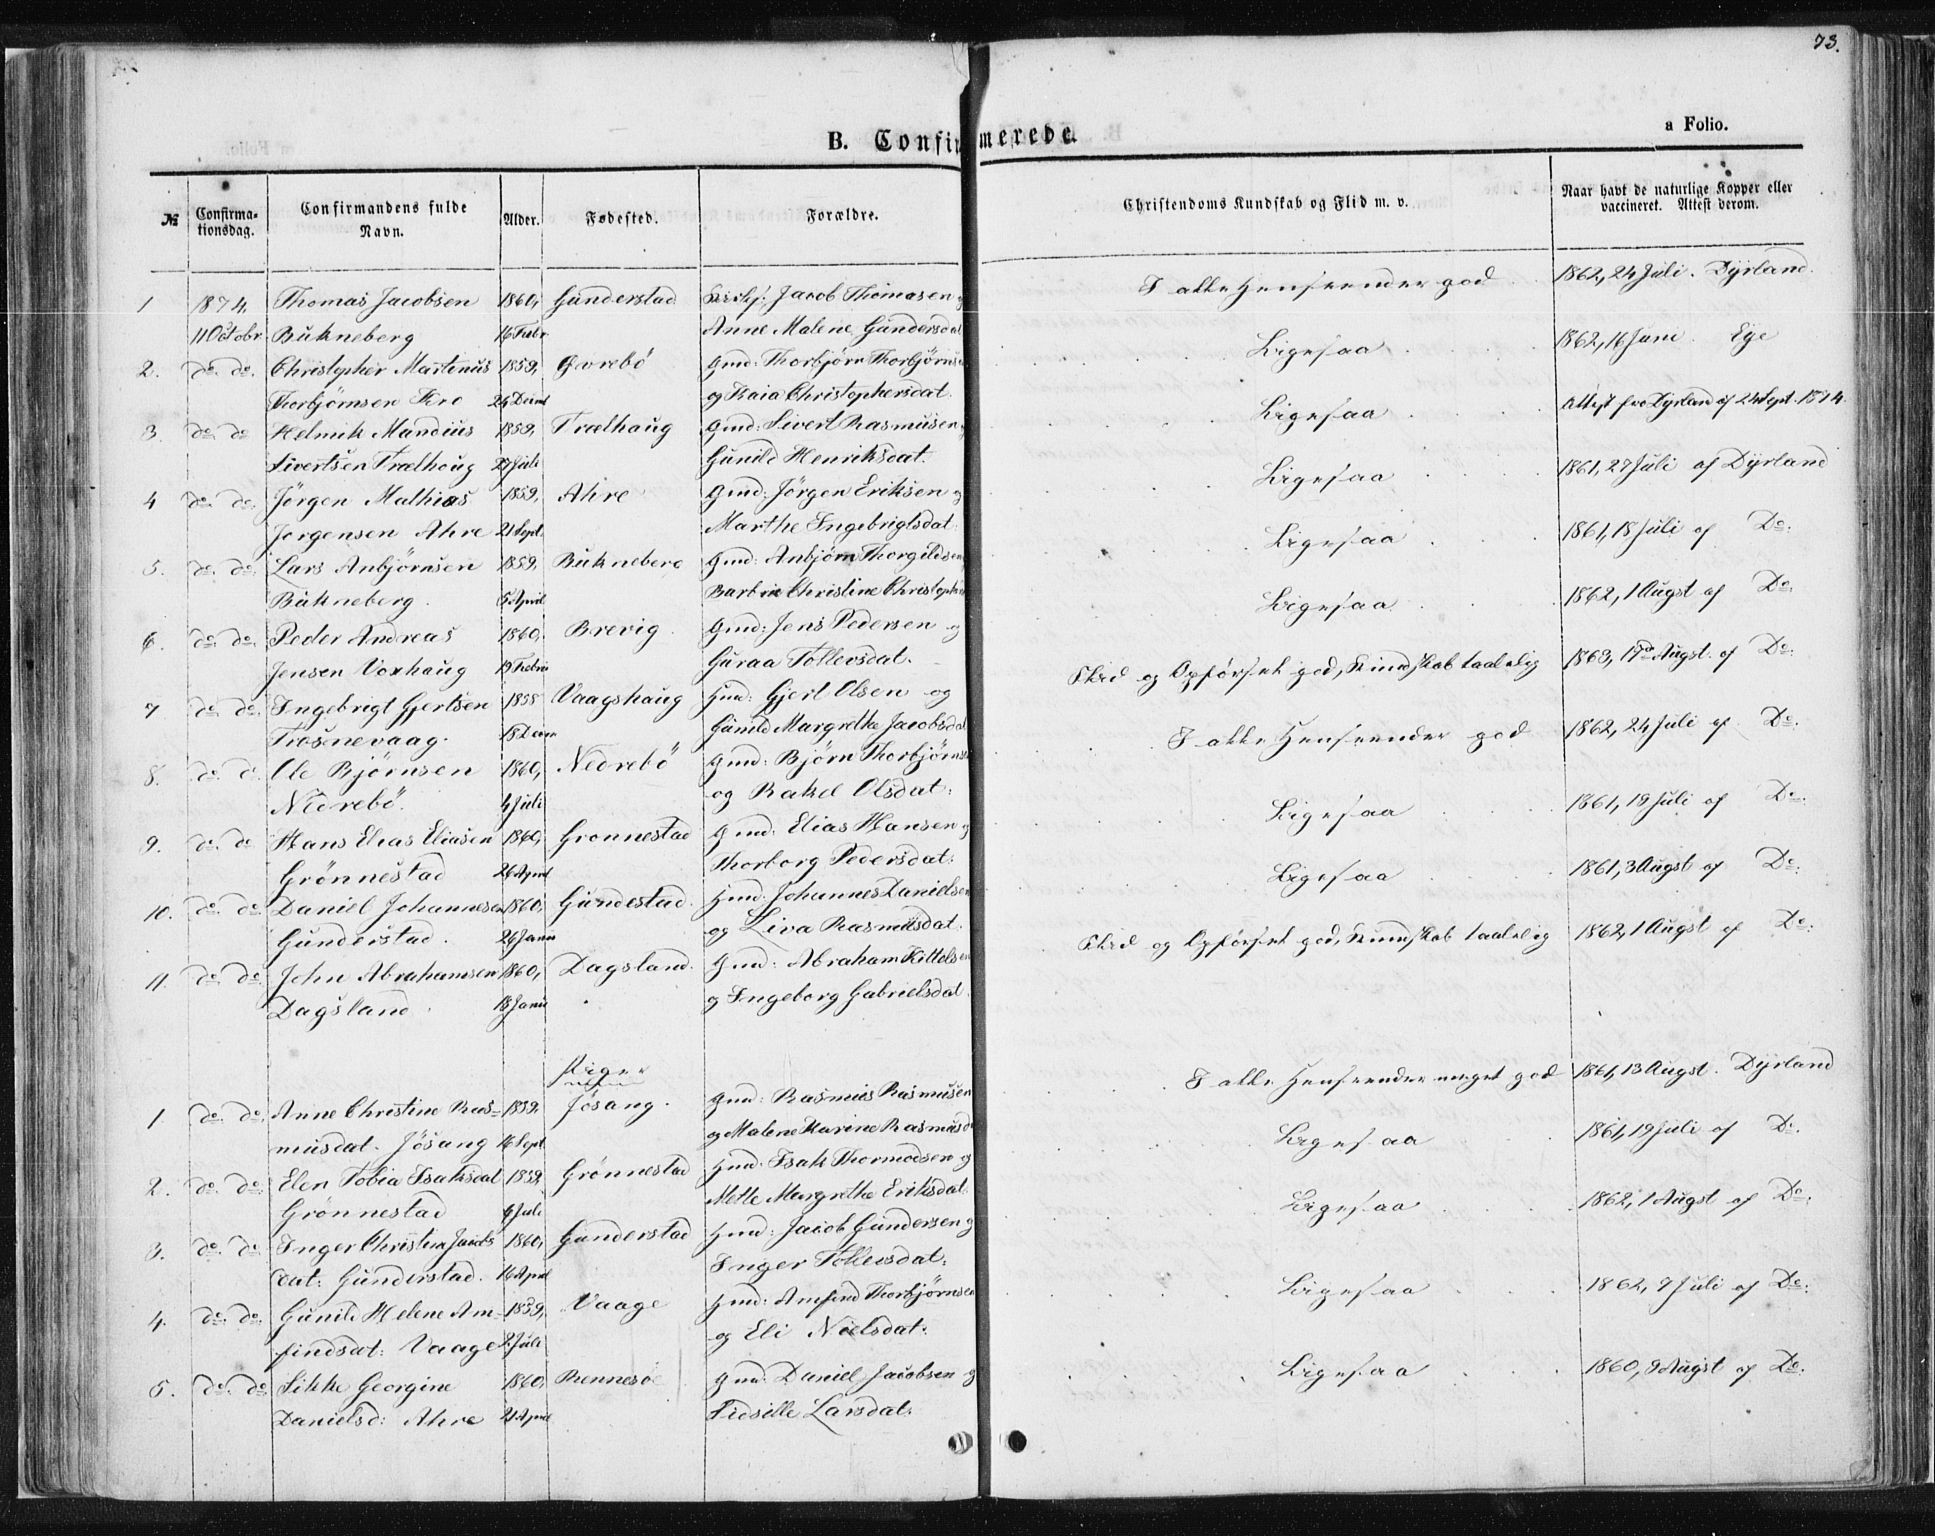 73.
B. Confirmerede.
a Folio.
№ Confirma-tionsdag. Confirmandens fulde Navn. Alder. Fødested. Forældre. Christendoms Kundskab og Flid m. v. Naar havt de naturlige Kopper eller vaccineret. Attest derom.
1 1874, Thomas Jacobsen 1860, Gunderstad Jacob Thomasen og I alle Henseender god 1862, 24 Juli. Dyrland.
11 Octobr. Bukneberg 16 Febr Anne Malene Gundersdat
2. do. do. Christopher Martinus 1859, Gørebö Gmd: Thorbjörn Thorbjörns Ligesaa 1862, 16 Juni Eje
Thorbjörnsen 24 Decmb og Kaia Christophersdat.
3. do. do Helmik Mandius 1859, Trælhaug Gmd: Sivert Rasmusen Ligesaa Attest fra Dyrland af 24 Sept. 1874.
Sivertsen Trælhoug 27 Juli Gunild Henriksdat.
4 do. do. Jörgen Mathias 1859, Ahre Gmd: Jörgen Eriksen og Ligesaa 1861, 27 Juli af Dyrland
Jorgensen Ahre 21 Sept. Marthe Ingebrigtsdat.
5. do. do. Lars Anbjörnsen 1859, Bukneberg Gmd: Anbjörn Thorgildsen Ligesaa 1861, 18 Juli af Do.
Bukneberg. 5 April Barbrie Christine Christoph
6. do. do. Peder Andreas 1860, Brevig. Gmd: Jens Pedersen og Ligesaa 1862, 1 Augst af Do.
Jensen Voxhaug 19 Febr Guraa Tollevsdat.
7 do. do. Ingebrigt Gjertsen 1858 Vaagshaug Hmd: Gjert Olsen og Flid og Opförsel god, Kundskab taalelig 1863, 17de Augst. af Do.
Trosnevaag. 18 Decm Gunild Margrethe Jacobsdat
8. do. do. Ole Björnsen 1860, Nedrebö Gmd: Björn Thorbjörns I alle Henseender god 1862, 24 Juli af Do.
Nedrebö. 4 Juli og Rakel Olsdat:
9. do. do Hans Elias Eliasen 1860, Gronnestad Gmd: Elias Hansen og Ligesaa 1861, 19 Juli af Do.
Grönnestad 26 April Thorborg Pedersdat:
10. do. do. Daniel Johannesen 1860, Gundestad. Hmd: Johannes Danielsen Ligesaa 1861, 3 Augst af Do.
Gunderstad. 26 Janu og Liva Rasmusdat.
11. do. do. John Abrahamsen 1860, Dagsland. Gmd: Abraham Kittelsen Flid og Opförsel god, Kundskab taalelig 1862, 1 Augst af Do.
Dagsland. 18 Janu og Ingeborg Gabrielsdat.
Piger
1. do. do. Anne Christine Ras- 1859. Jösang. Gmd: Rasmus Rasmusen I alle Henseender meget god 1861, 13 Augst. Dyrland
musdat. Jösang 16 Sept og Malene Karine Rasmusd
2. do. do. Elen Tobia Isaksdat 1859, Grönnestad Hmd: Isak Thormodsen og Ligesaa 1861, 19 Juli af Do.
Grönnestad 9 Juli Mette Margrethe Eriksdat.
3. do. do. Inger Christine Jacobs 1860, Gunderstad Hmd: Jacob Gundersen og Ligesaa 1862, 1 Augst af Do.
dat: Gunderstad. 16 April Inger Tollevsdat:
4. do. do. Gunild Helene Am- 1859, Vaage Hmd: Amfind Thorbjörnsen Ligesaa 1862, 9 Juli af Do:
findsdat: Vaage 2 Juli og Eli Nielsdat:
5. do. do. Sikke Georgine 1860, Rennesöe Gmd. Daniel Jacobsen og Ligesaa 1860, 9 Augst af Do.
Danielsd: Ahre 21 April Sidselle Larsdat.